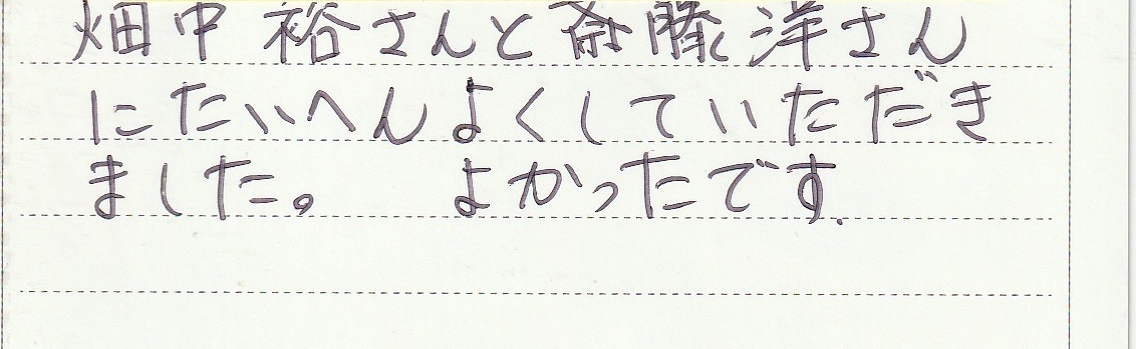 畑中 裕さんと斎藤 洋さん
にたいへんよくしていただき
ました。 よかったです.